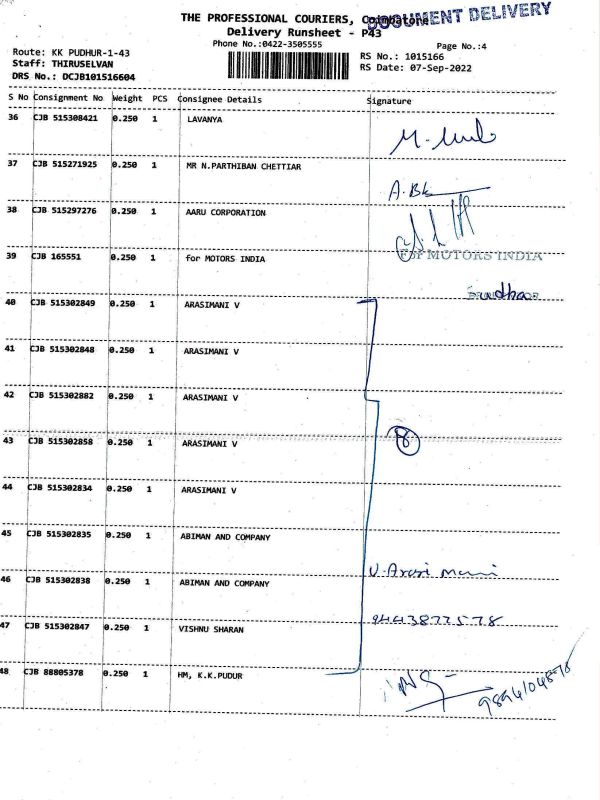 THE PROFESSIONAL COURIERS, Coimbatore
DOCUMENT DELIVERY
Delivery Runsheet - P43
Phone No.:0422-3505555
Page No.:4
Route: KK PUDHUR-1-43
RS No.: 1015166
Staff: THIRUSELVAN
RS Date: 07-Sep-2022
DRS No.: DCJB101516604
S No Consignment No Weight PCS Consignee Details Signature
36 CJB 515308421 0.250 1 LAVANYA
37 CJB 515271925 0.250 1 MR N.PARTHIBAN CHETTIAR
38 CJB 515297276 0.250 1 AARU CORPORATION
39 CJB 165551 0.250 1 for MOTORS INDIA
For MOTORS INDIA
40 CJB 515302849 0.250 1 ARASIMANI V
41 CJB 515302848 0.250 1 ARASIMANI V
42 CJB 515302882 0.250 1 ARASIMANI V
43 CJB 515302858 0.250 1 ARASIMANI V
8
44 CJB 515302834 0.250 1 ARASIMANI V
45 CJB 515302835 0.250 1 ABIMAN AND COMPANY
46 CJB 515302838 0.250 1 ABIMAN AND COMPANY
V. Arasi Mani
47 CJB 515302847 0.250 1 VISHNU SHARAN
9443877578
48 CJB 88805378 0.250 1 HM, K.K.PUDUR